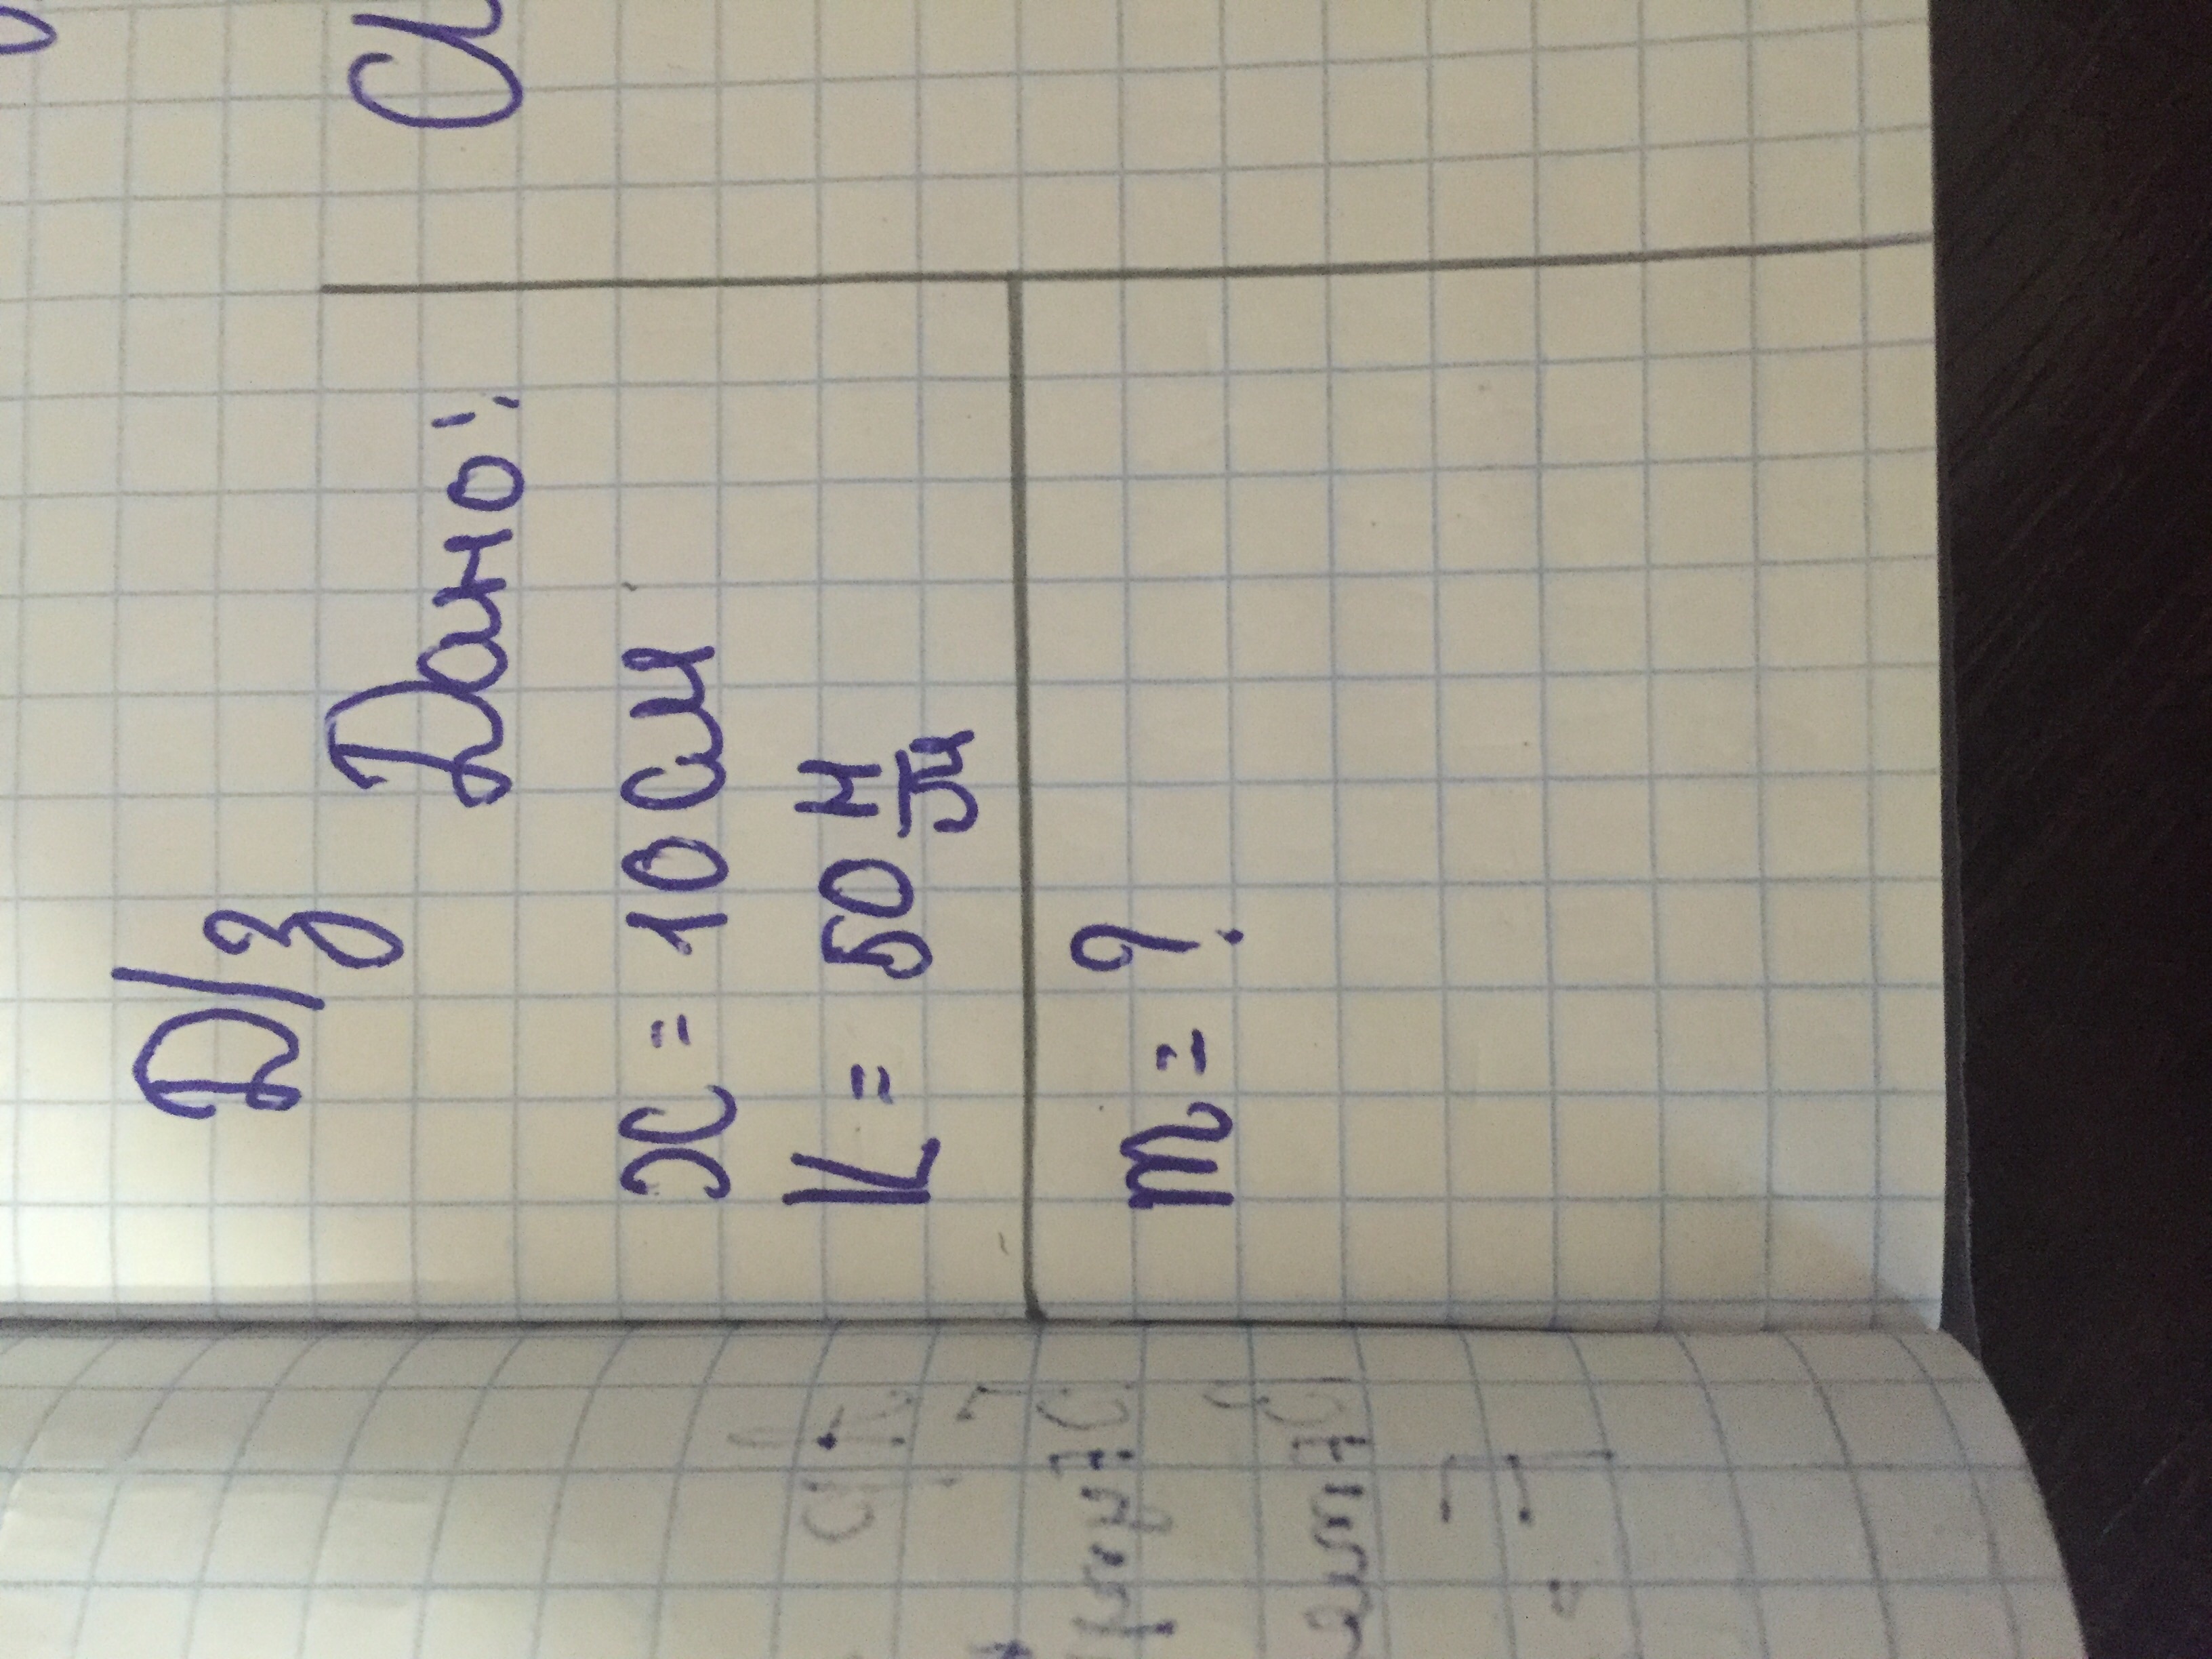 Д/з
Дано:
x = 10 см
K = 50 Н/см
m = ?